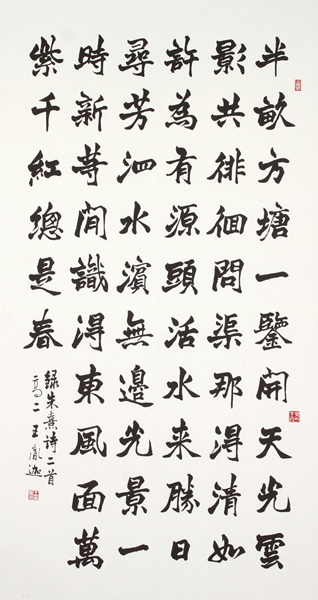 半畝方塘一鑒開天光雲
影共徘徊問渠那得清如
許為有源頭活水來勝日
尋芳泗水濱無邊光景一
時新等閒識得東風面萬
紫千紅總是春
録朱熹诗二首
高二王胤